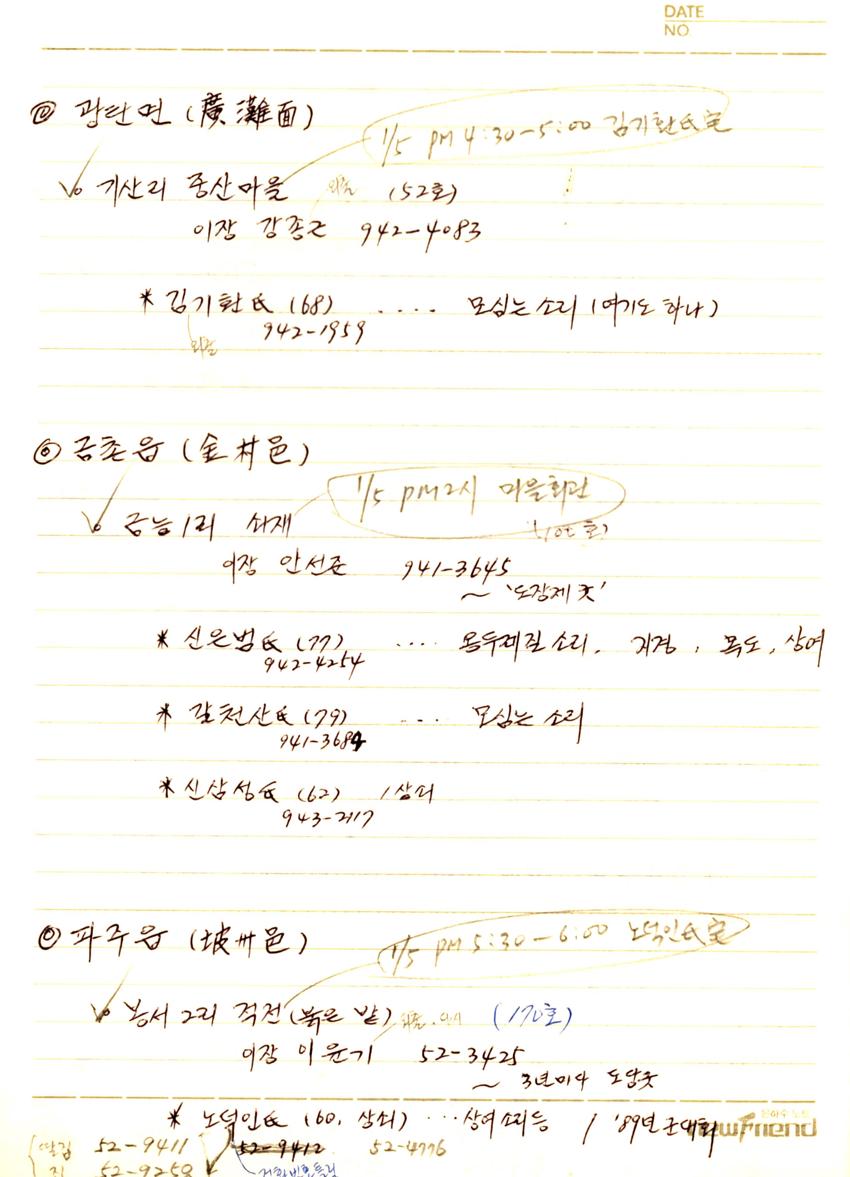 DATE
NO
◎ 광탄면 (廣灘面)
1/5 PM 4:30-5:00 김기환氏宅
기산리 중산마을 (52호)
이장 강종근 942-4083
* 김기환氏 (68) .... 모심는소리 (여기도 하나)
942-1959
◎ 금촌읍 (金村邑)
1/5 PM 2시 마을회관
금능1리 쇠재
이장 안선준 941-3645
~ '도장제 굿'
* 신은범氏 (77) .... 용두레질소리, 지경, 목도, 상여
942-4254
* 갈천산氏 (79) .... 모심는 소리
941-3684
* 신삼성氏 (62) / 상쇠
943-2117
◎ 파주읍 (坡州邑)
1/5 PM 5:30-6:00 노덕인氏宅
봉서2리 적전 (붉은 밭) (170호)
이장 이윤기 52-3425
~ 3년마다 도당굿
* 노덕인氏 (60, 상쇠) ... 상여소리등 / '89년 군대회
52-9411 52-9412 52-4776
집 52-9258